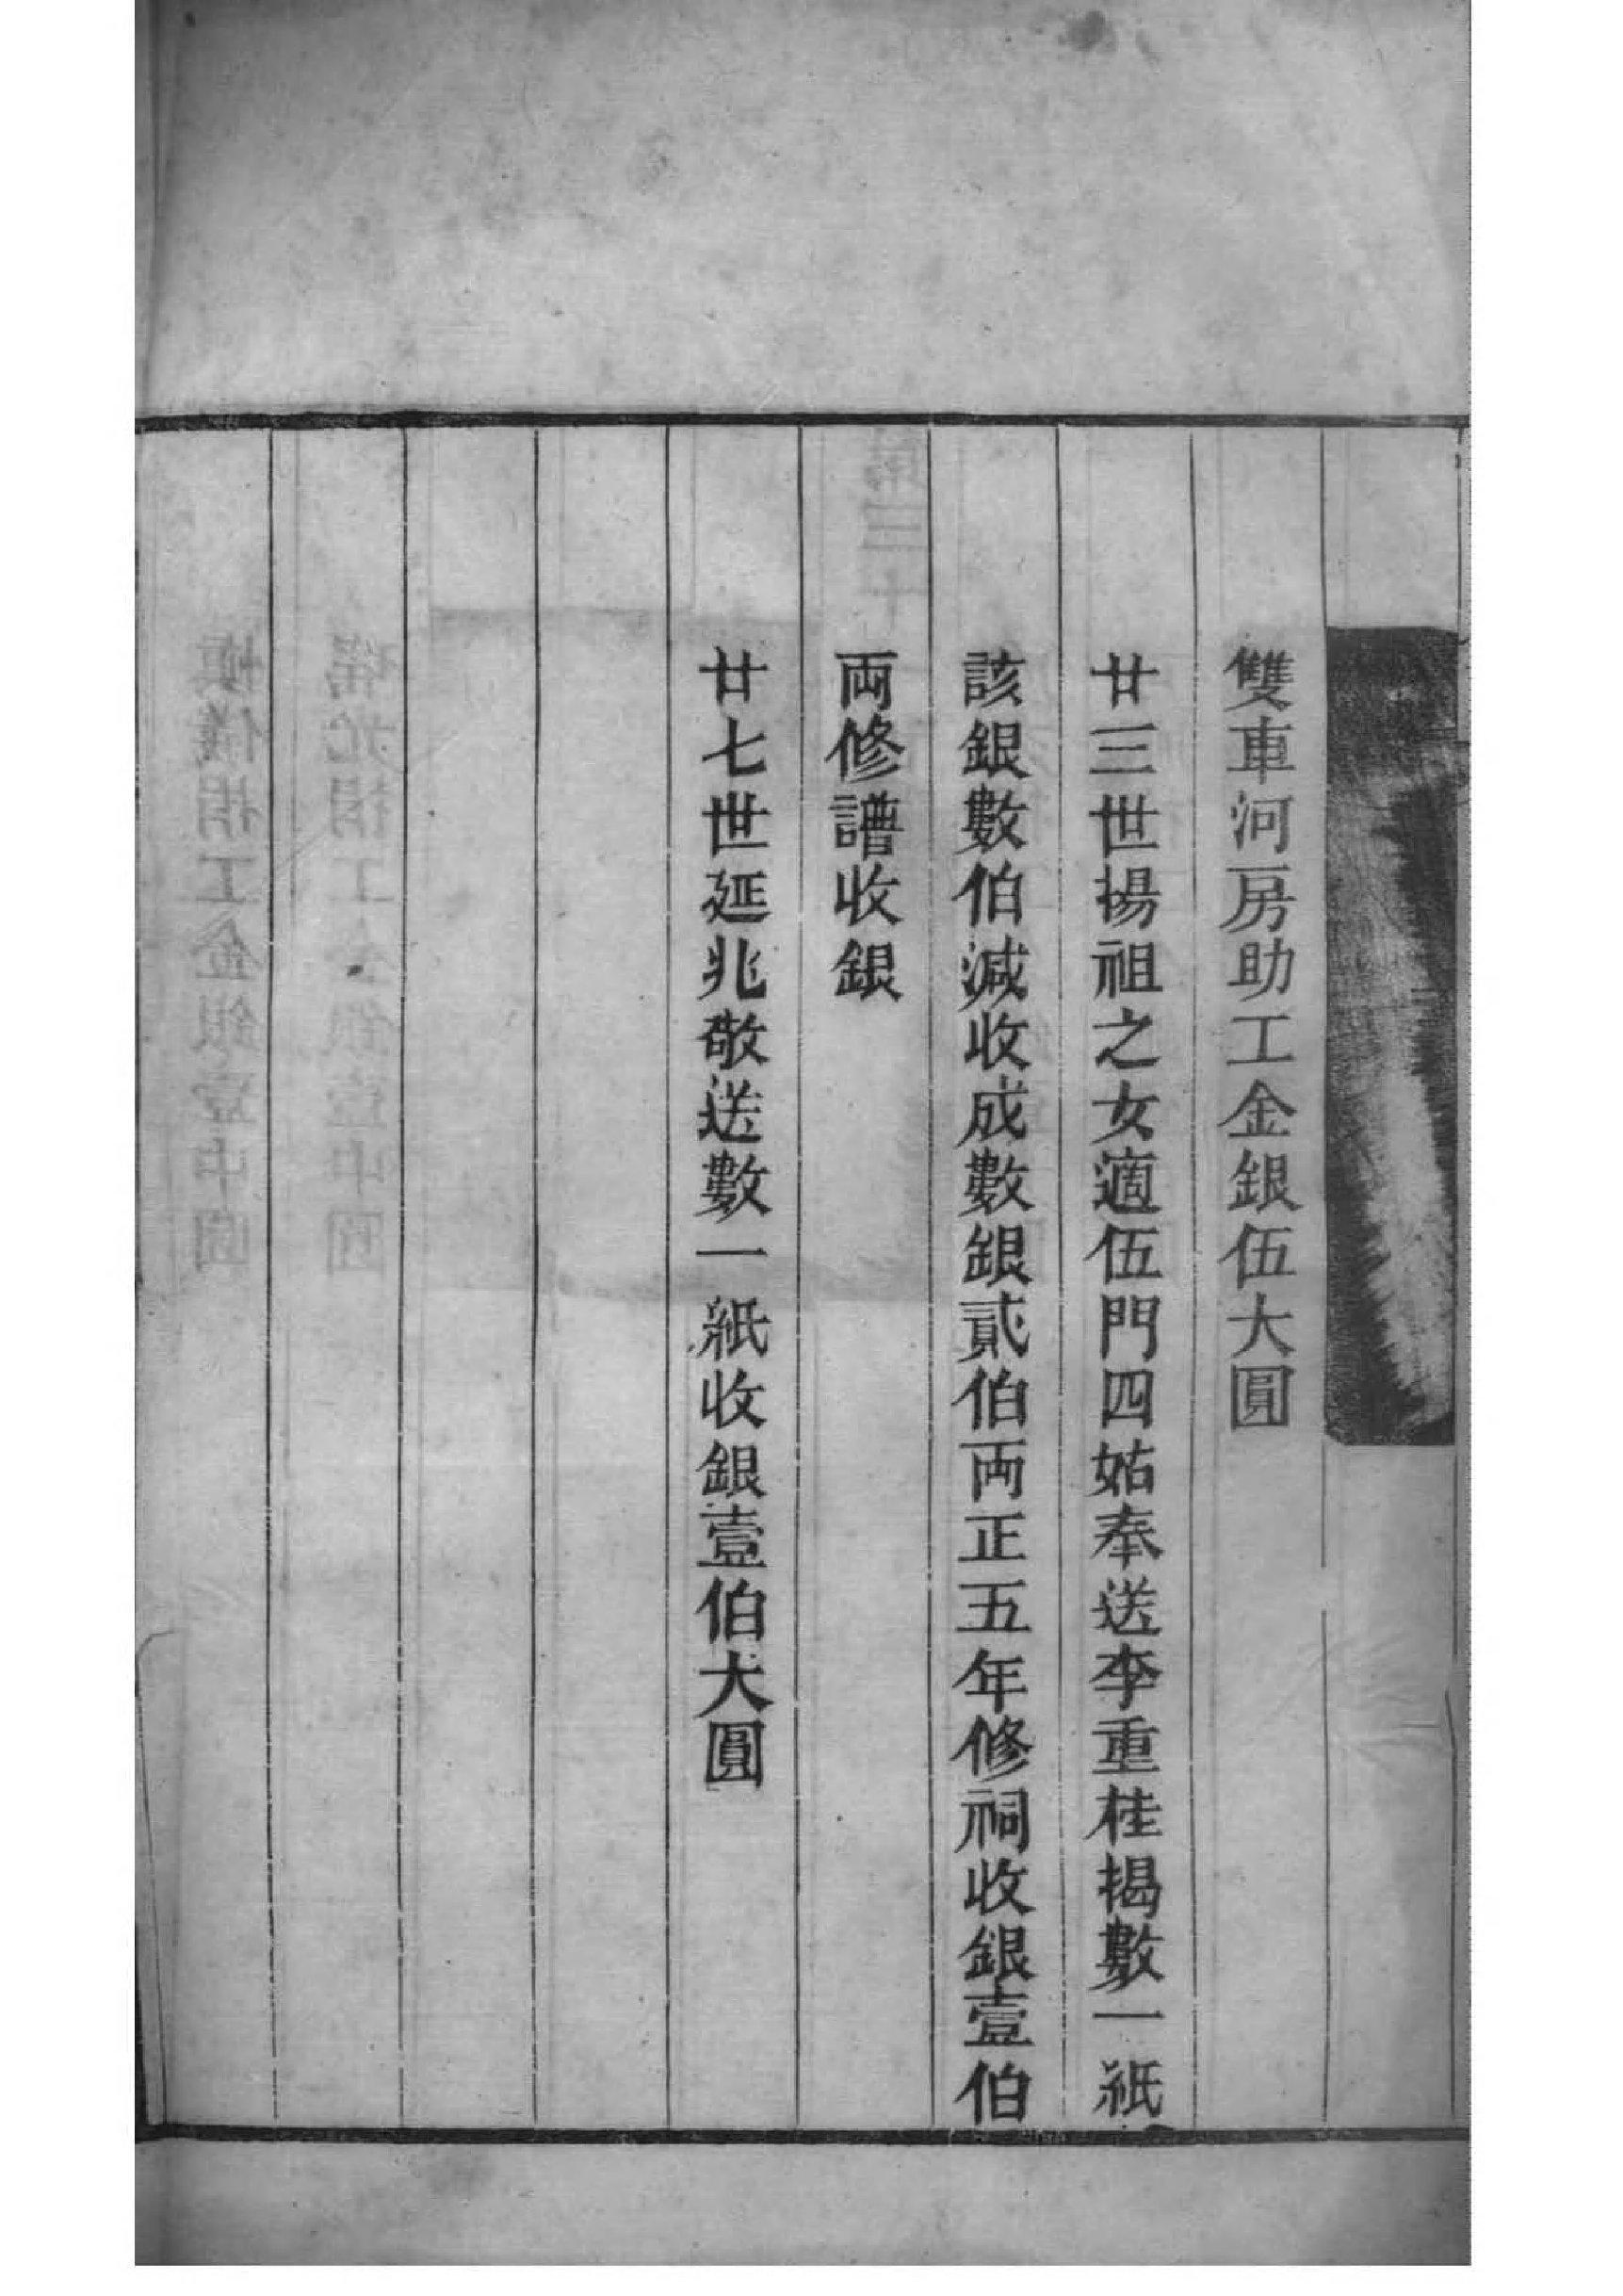 雙車河房助工金銀伍大圓
廿三世揚祖之女適伍門四姑奉送李重桂揭數一紙
該銀數伯減收成數銀貳伯両正五年修祠收銀壹伯
両修譜收銀
廿七世延兆敬送數一紙收銀壹伯大圓